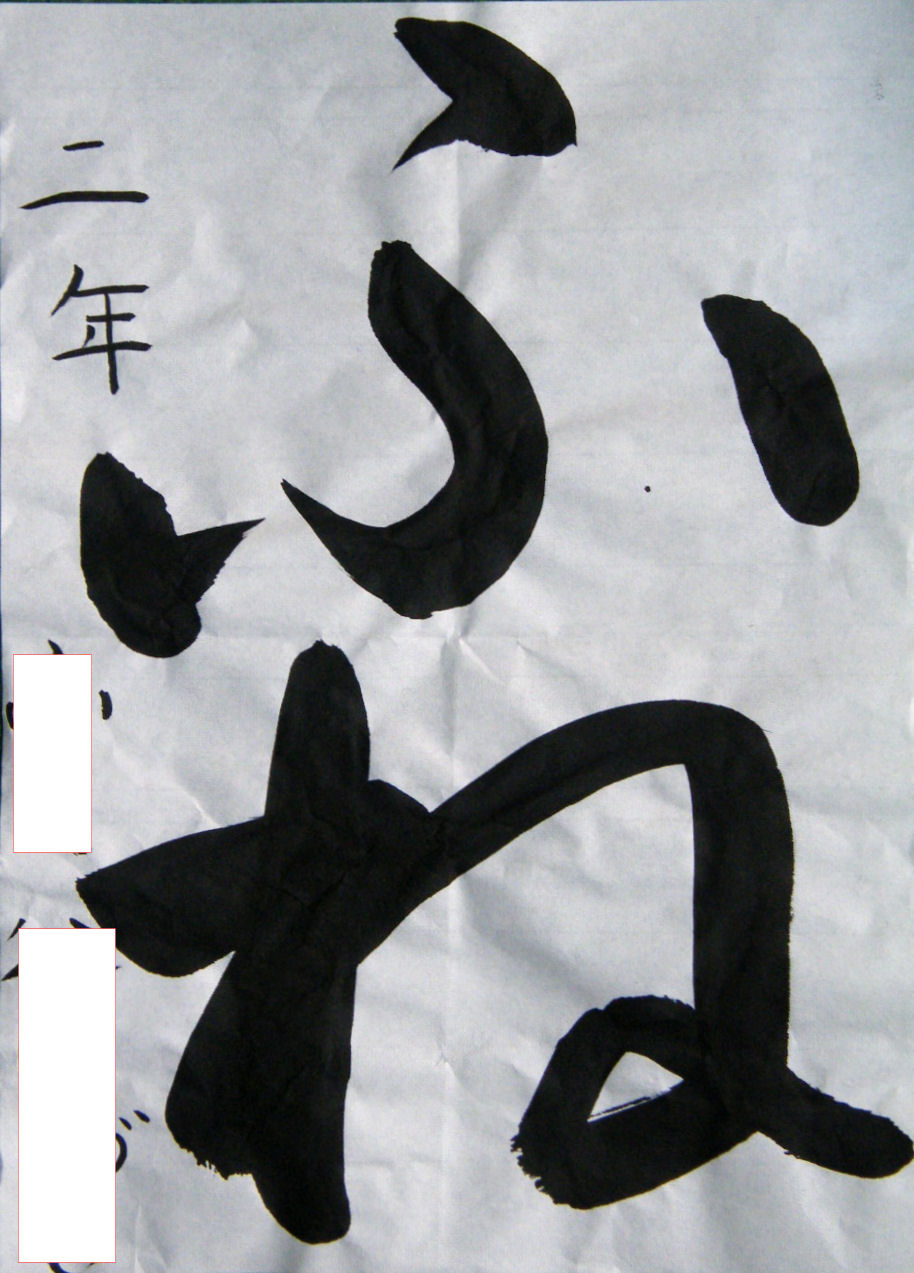 ふね
二年